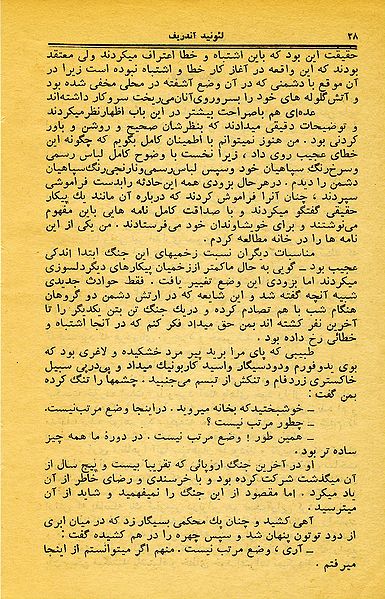 ۲۸ لئونید آندریف
حقیقت این بود که باین اشتباه و خطا اعتراف میکردند ولی معتقد
بودند که این واقعه در آغاز کار خطا و اشتباه نبوده است زیرا در
آن موقع با دشمنی که در آن وضع آشفته در محلی مخفی شده بود
و آتش گلوله های خود را بسروروی آنان می‌ریخت سروکار داشته‌اند
عده‌ای هم باصراحت بیشتر در این باب اظهار نظر میکردند
و توضیحات دقیقی میدادند که بنظرشان صحیح و روشن و باور
کردنی بود . من هنوز نمیتوانم با اطمینان کامل بگویم که چگونه این
خطای عجیب روی داد ، زیرا نخست با وضوح کامل لباس رسمی
وسرخ‌رنگ سپاهیان خود وسپس لباس‌رسمی‌ونارنجی‌رنگ‌سپاهیان
دشمن را دیدم . درهرحال بزودی همه این‌حادثه رابدست فراموشی
سپردند ، چنان آنرا فراموش کردند که درباره آن مانند یك پیکار
حقیقی گفتگو میکردند و با صداقت کامل نامه هایی باین مفهوم
می‌نوشتند و برای خویشاوندان خود می‌فرستادند . من یکی از این
نامه ها را در خانه مطالعه کردم .
مناسبات دیگران نسبت زخمیهای این جنگ ابتدا اندکی
عجیب بود ـ گویی به حال ماکمتر اززخمیان پیکارهای دیگردلسوزی
میکردند اما بزودی این وضع تغییر یافت . فقط حوادث جدیدی
شبیه آنچه گفته شد و این شایعه که در ارتش دشمن دو گروهان
هنگام شب با هم تصادم کرده و دریك جنگ تن بتن یکدیگر را تا
آخرین نفر کشته اند بمن حق میداد فکر کنم که در آنجا اشتباه و
خطائی رخ داده بود .
طبیبی که پای مرا برید پیر مرد خشکیده و لاغری بود که
بوی یدوفورم ودودسیگار واسید کاربونیك میداد و پی‌درپی سبیل
خاکستری زردفام و تنکش از تبسم می‌جنبید . چشمها را تنگ کرده
بمن گفت :
ـ خوشبختیدکه بخانه میروید . دراینجا وضع مرتب‌نیست.
ـ چطور مرتب نیست ؟
ـ همین طور ! وضع مرتب نیست . در دورۀ ما همه چیز
ساده تر بود .
او در آخرین جنگ اروپائی که تقریباً بیست و پنج سال از
آن میگذشت شرکت کرده بود و با خرسندی و رضای خاطر از آن
یاد میکرد . اما مقصود از این جنگ را نمیفهمید و شاید از آن
میترسید .
آهی کشید و چنان پك محکمی بسیگار زد که در میان ابری
از دود توتون پنهان شد و سپس چهره را در هم کشیده گفت :
ـ آری ، وضع مرتب نیست . منهم اگر میتوانستم از اینجا
میرفتم .